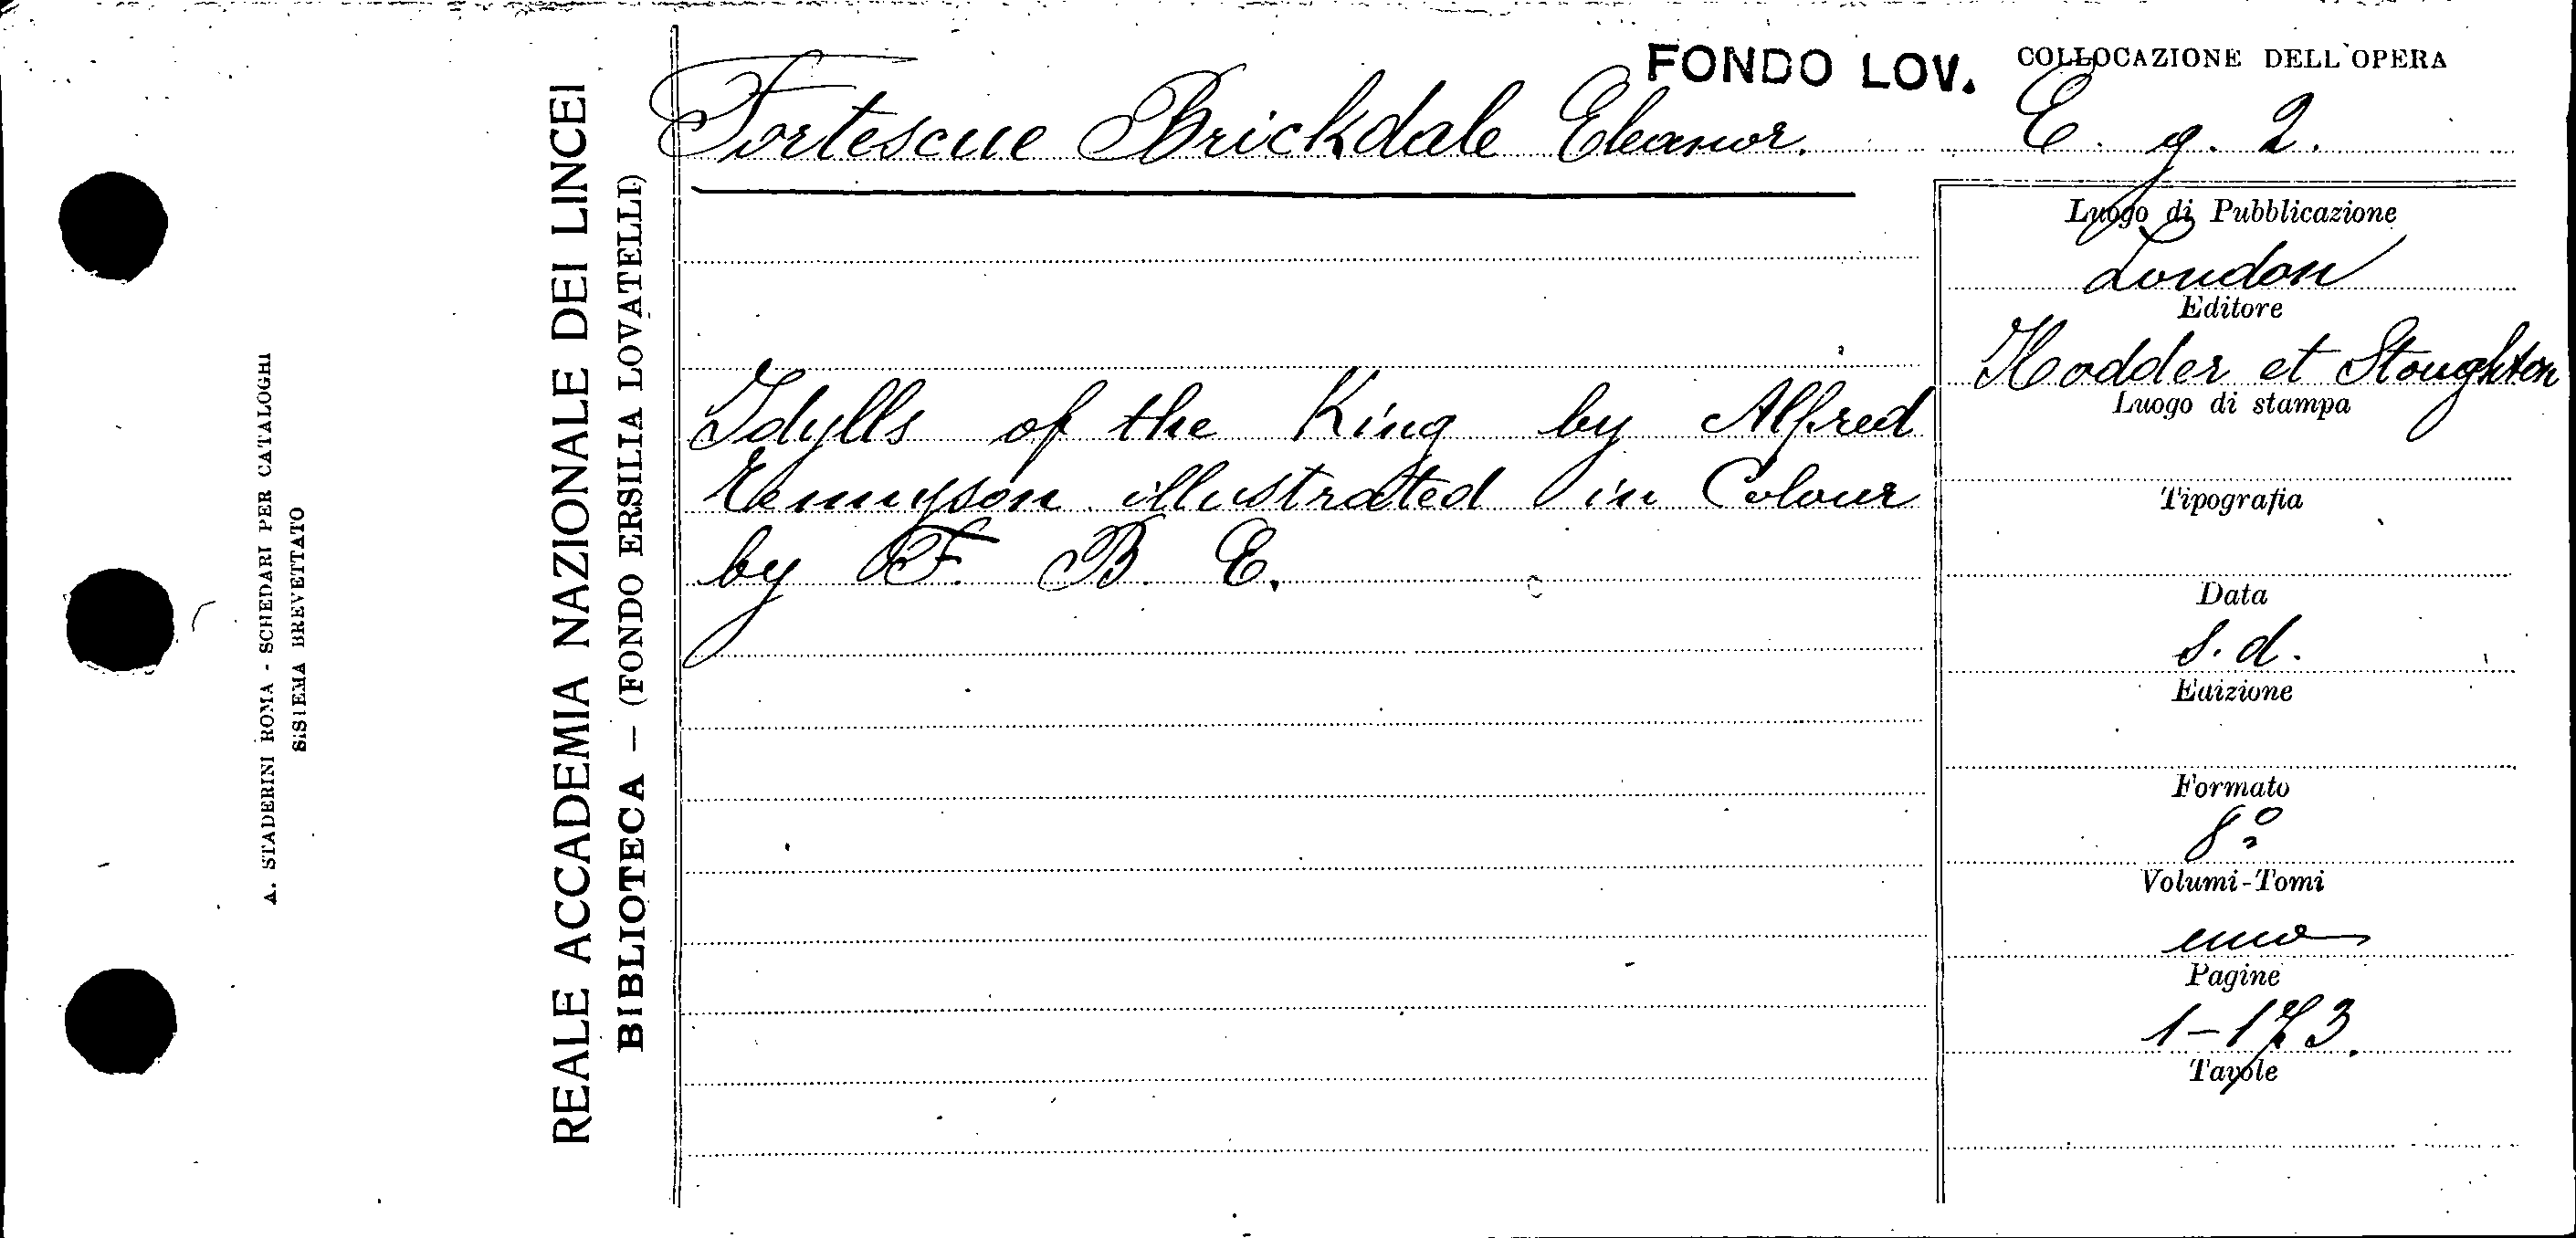 A. STADERINI ROMA - SCHEDARI PER CATALOGHI
SISTEMA BREVETTATO
REALE ACCADEMIA NAZIONALE DEI LINCEI
BIBLIOTECA — (FONDO ERSILIA LOVATELLI)
FONDO LOV.
COLLOCAZIONE DELL'OPERA
Fortescue Brickdale Eleanor.
E. g. 2.
Idylls of the King by Alfred
Tennyson illustrated in Colour
by F. B. E.
Luogo di Pubblicazione
London
Editore
Hodder et Stoughton
Luogo di stampa
Tipografia
Data
s. d.
Edizione
Formato
8º
Volumi-Tomi
uno
Pagine
1-173.
Tavole